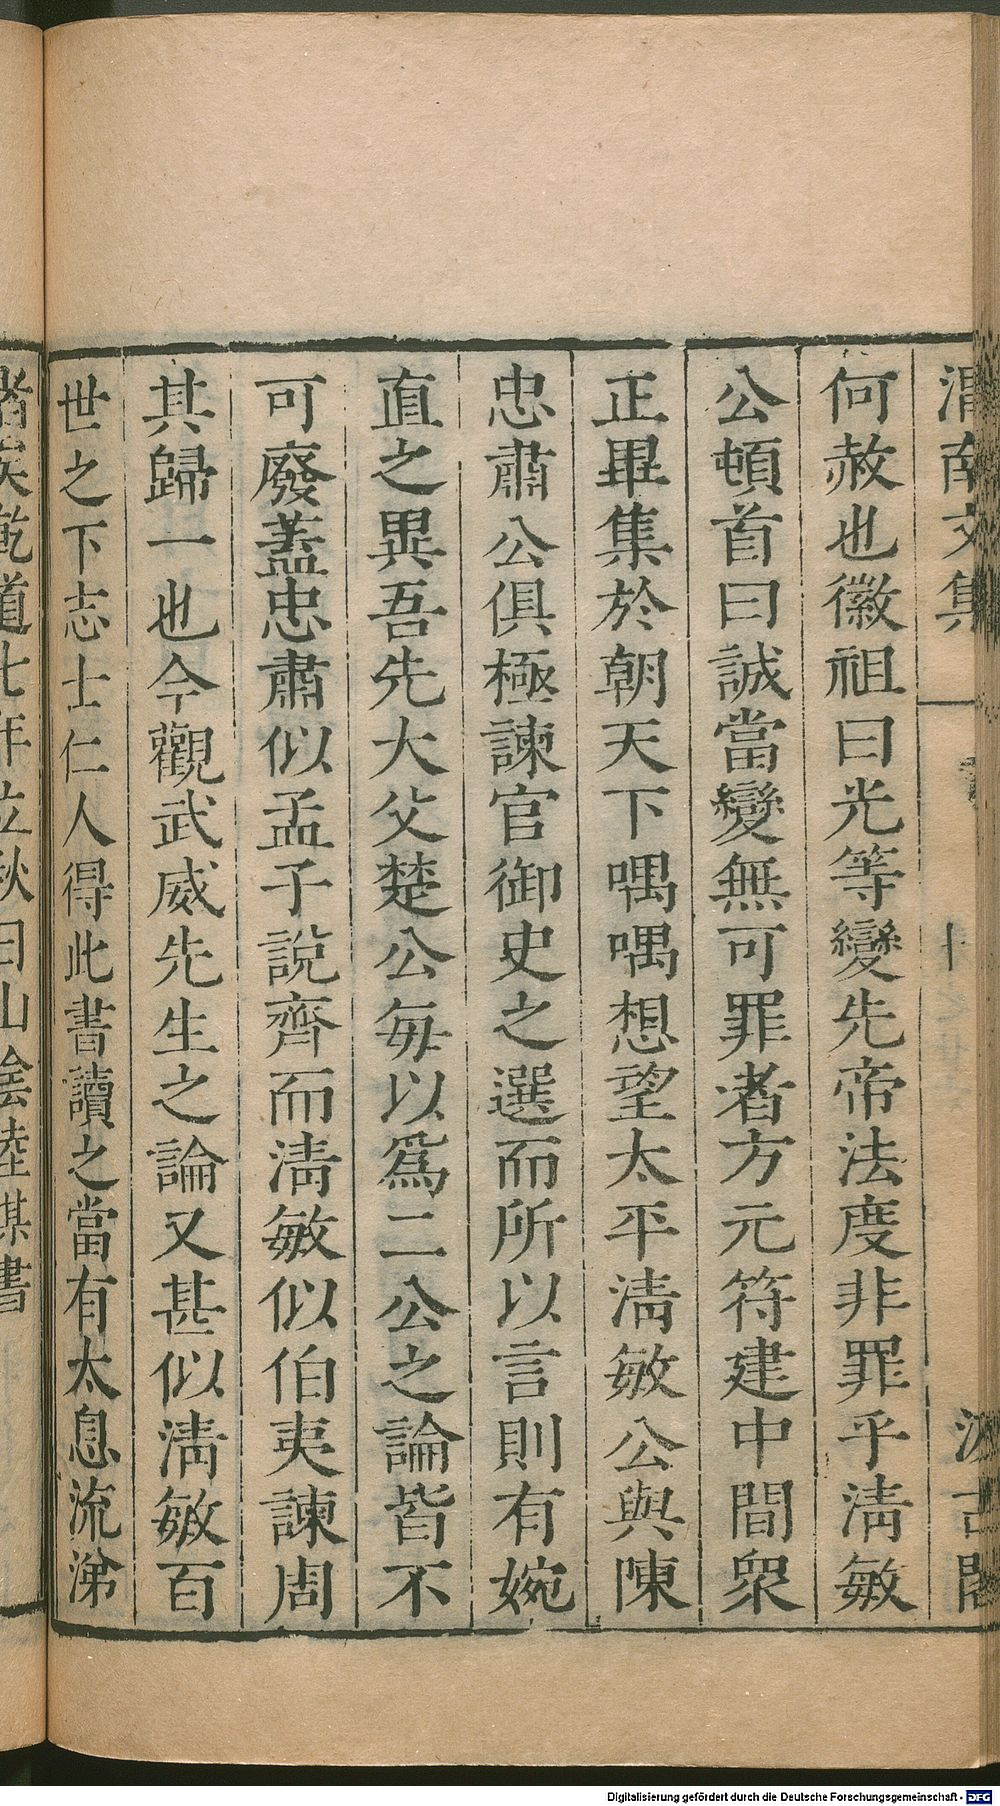 渭南文集
汲古閣
何赦也徽祖曰光等變先帝法度非罪乎淸敏
公頓首曰誠當變無可罪者方元符建中間眾
正畢集於朝天下喁喁想望太平淸敏公與陳
忠肅公俱極諫官御史之選而所以言則有婉
直之異吾先大父楚公每以爲二公之論皆不
可廢蓋忠肅似孟子說齊而淸敏似伯夷諫周
其歸一也今觀武威先生之論又甚似淸敏百
世之下志士仁人得此書讀之當有太息流涕
者矣乾道七年立秋日山陰陸某書
Digitalisierung gefördert durch die Deutsche Forschungsgemeinschaft - DFG